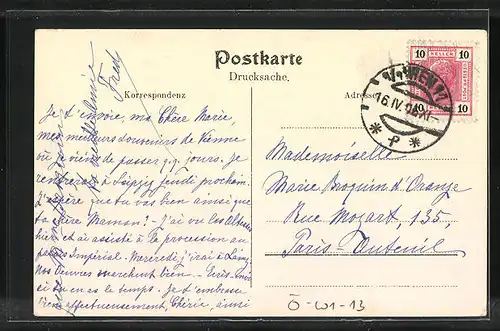 Postkarte
Drucksache.
Korrespondenz
Adresse
10 HELLER 10
10 10
9/1 WIEN
16.IV. XI
* P *
Je t'envoie, ma Chère Marie,
mes meilleurs souvenirs de Vienne
où je viens de passer q.q. jours. Je
rentrerai à Leipzig jeudi prochain.
J'espère que tu vas bien ainsi que
ta chère Maman? - J'ai vu les
hier et ai assisté à la procession au
palais Impérial. Mercredi j'irai à
Nos Oeuvres marchent bien - Écris-moi
si tu en as le temps. Je t'embrasse
bien affectueusement, Chérie, ainsi
Fred
Mademoiselle
Marie Broquin d'Orange
Rue Mozart, 135,
Paris-Auteuil
Ö-W1-13